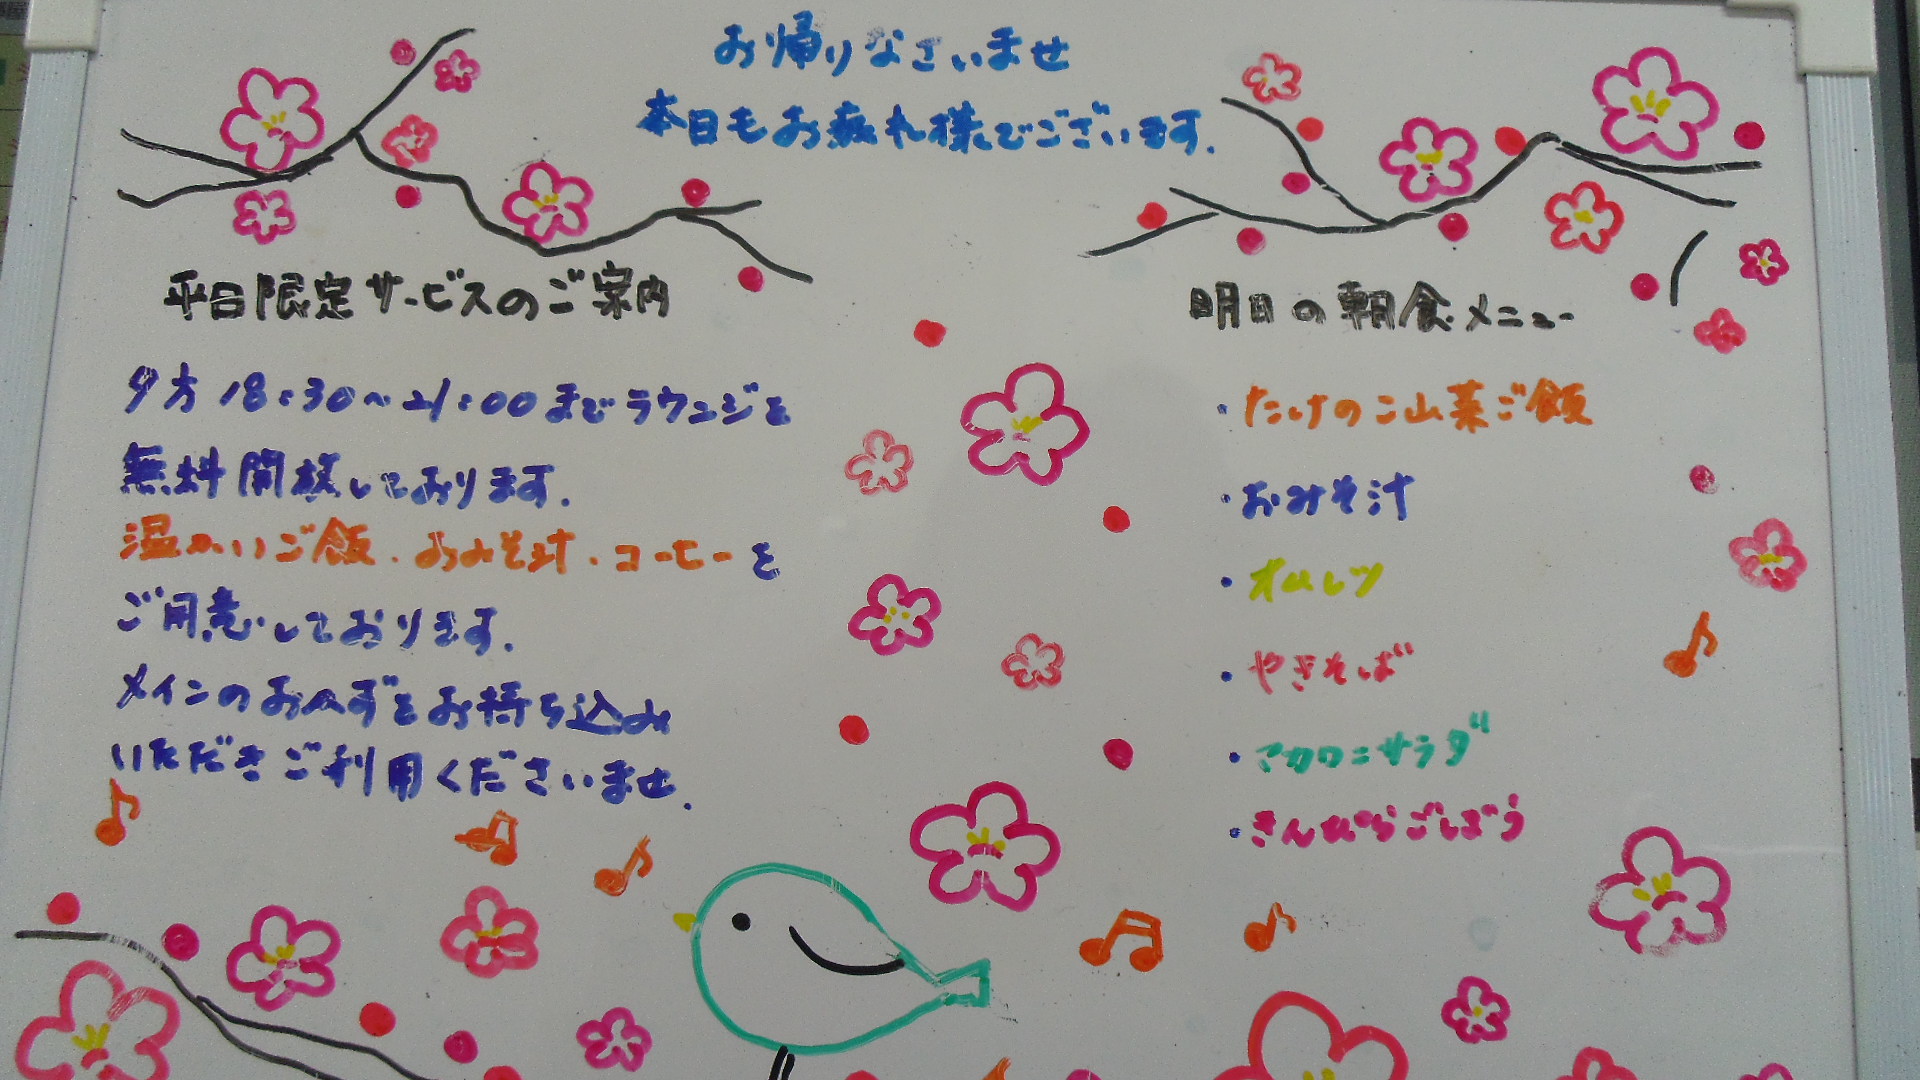 お帰りなさいませ
本日もお疲れ様でございます.
平日限定サービスのご案内
夕方18:30~21:00までラウンジを
無料開放しております.
温かいご飯・おみそ汁・コーヒーを
ご用意しております.
メインのおかずをお持ち込み
いただきご利用くださいませ.
明日の朝食メニュー
・たけのこ山菜ご飯
・おみそ汁
・オムレツ
・やきそば
・マカロニサラダ
・きんぴらごぼう